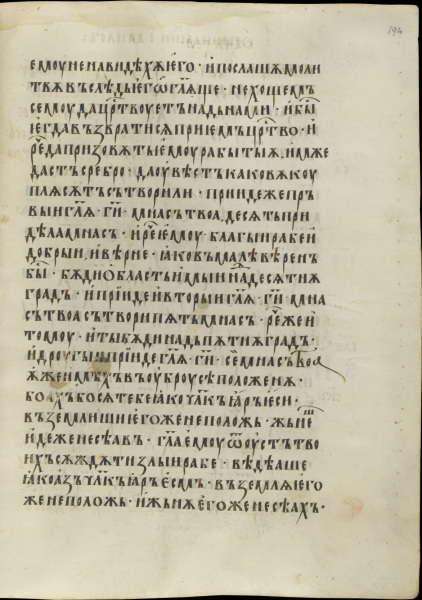 194
емоу ненавидѣхѫ его · и послашѧ моли
твѫ въслѣдъ его гл҃ѧще · не хощемъ
семоу да цр҃твоуетъ надъ нами · и бы҃
егда възвратисѧ приемъ цр҃тво · и
реч҃ да призовѫтъ емоу рабы тыѧ, имже
дастъ сребро · да оувѣстъ какоѫ коу
плѧ сѫтъ сътворили · прииде же пръ
выи гл҃ѧ · г҃и · мнаса твоа десѧть при
дѣла мнасъ · и реч҃ емоу · благыи рабе и
добрыи, и вѣрне · ꙗко въ малѣ вѣренъ
бы҃ · бѫди область имыи на десѧтиѫ
градъ · и прииде и вторыи гл҃ѧ · г҃и · мна
съ твоа сътвори пѧть мнасъ · реч҃ же и
томоу · и ты бѫди надъ пѧтиѫ градъ ·
и дроугыи прииде гл҃ѧ · г҃и · се мнасъ твоа
ѫже имѣхъ въ оуброусѣ положенѫ ·
боахъ бо сѧ тебе ꙗко чл҃къ ꙗръ еси ·
въземлиши егоже не положь · жьнеш҃
идеже не сѣавъ · гл҃а емоу ѿ оустъ тво
ихъ сѫждѫ ти злыи рабе · вѣдѣаше
ꙗко азъ чл҃къ ꙗръ есмъ · въземлѧ его
же не положь · и жьнѧ егоже не сѣахъ ·